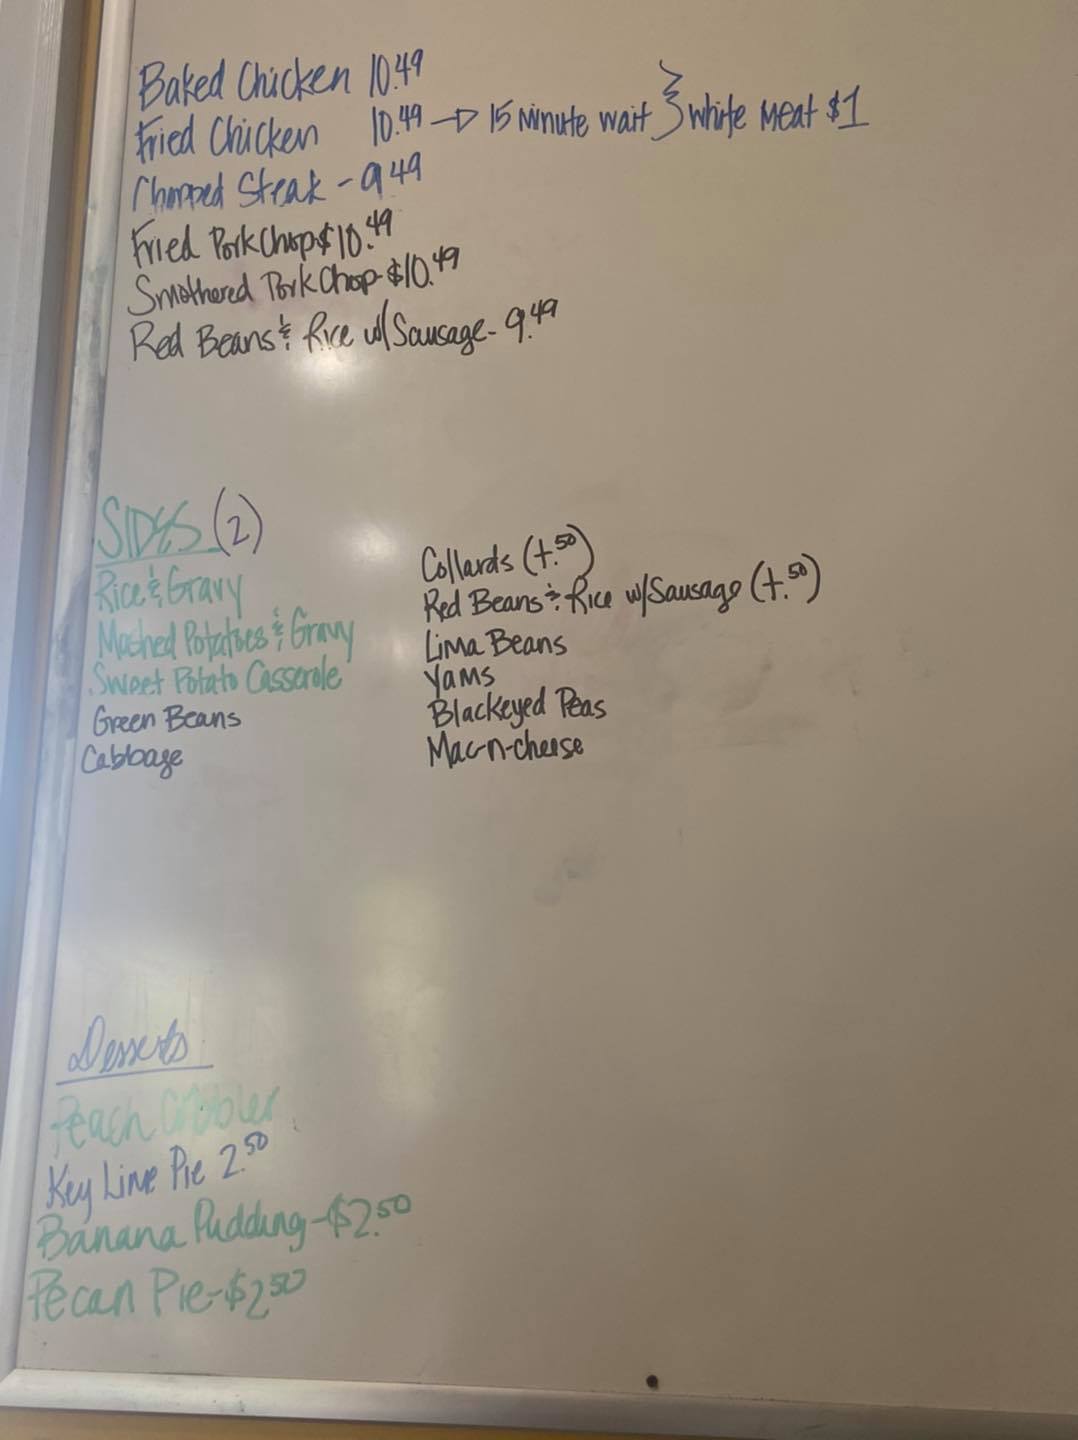 Baked Chicken 10.49
Fried Chicken 10.49 → 15 Minute wait } white Meat $1
Chopped Steak - 9.49
Fried Pork Chop $10.49
Smothered Pork Chop - $10.49
Red Beans & Rice w/ Sausage - 9.49
SIDES (2)
Rice & Gravy
Mashed Potatoes & Gravy
Sweet Potato Casserole
Green Beans
Cabbage
Collards (+.50)
Red Beans & Rice w/ Sausage (+.50)
Lima Beans
Yams
Blackeyed Peas
Mac-n-cheese
Desserts
Peach Cobbler
Key Lime Pie 2.50
Banana Pudding - $2.50
Pecan Pie - $2.50